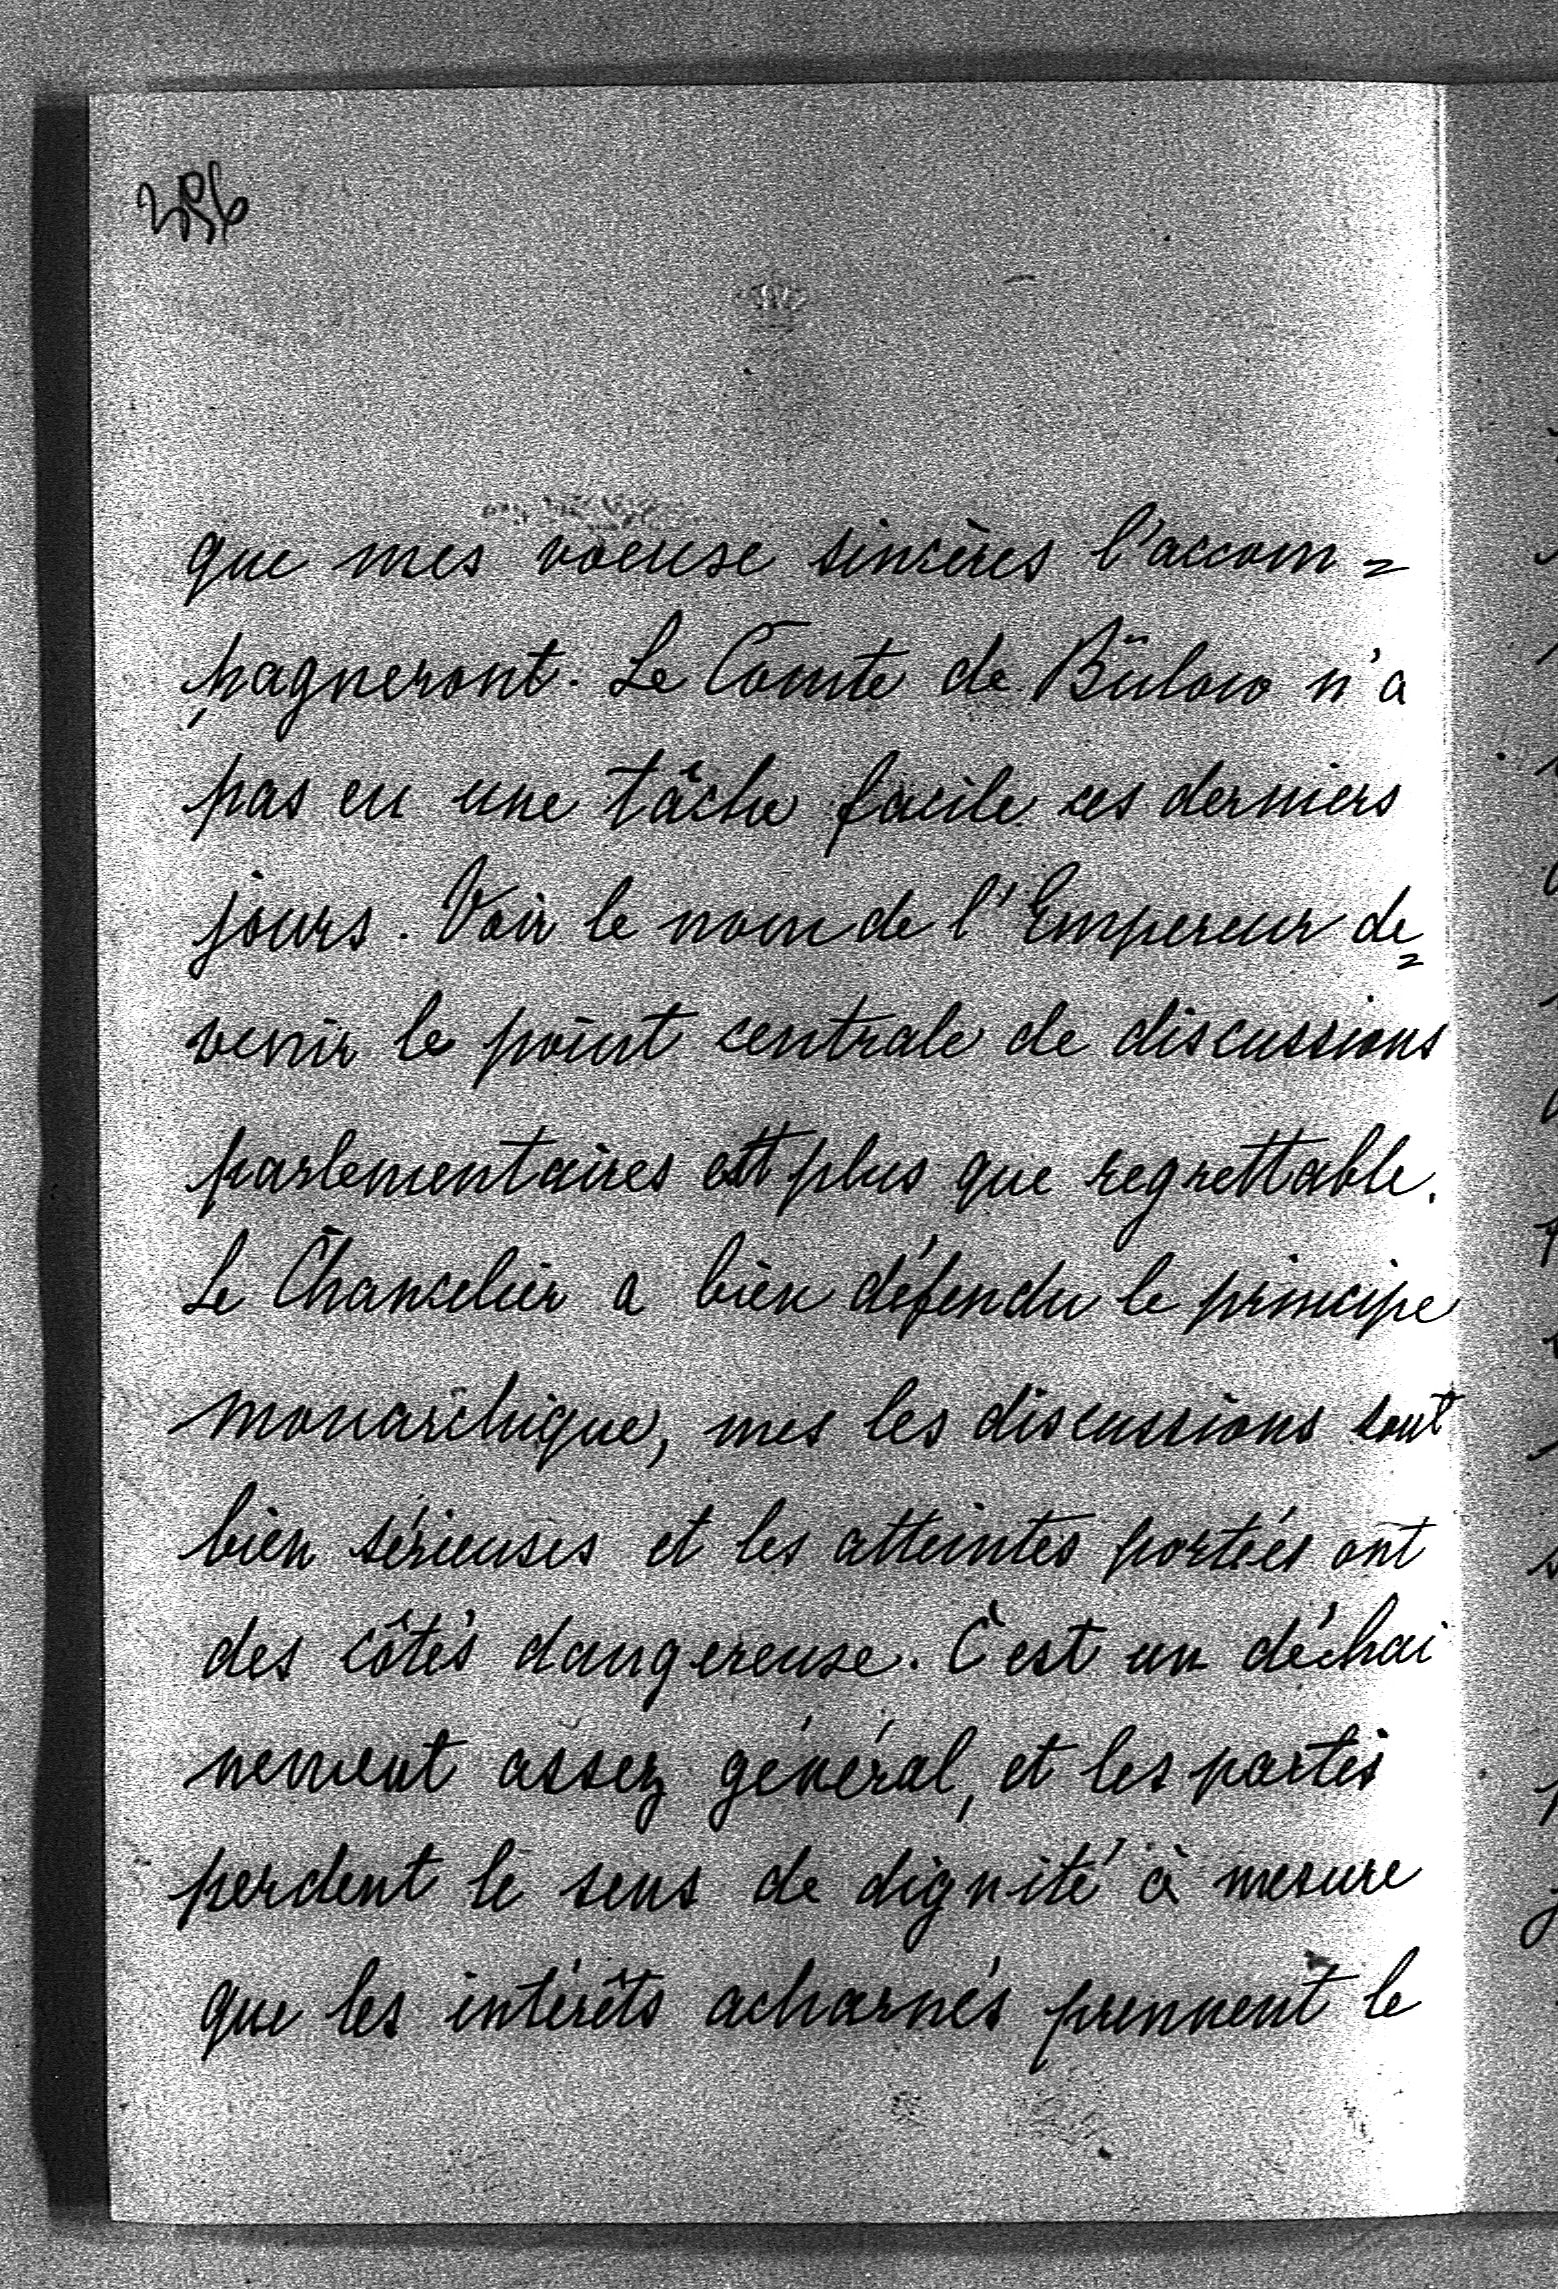 que mes voeuse sincères l'accom=
pagneront. Le Comte de Bülow n'a
pas eu une tâche facile ces derniers
jours. Voir le nom de l'Empereur de=
venir le point centrale de discussions
parlementaires est plus que regrettable.
Le Chancelier a bien défendu le principe
monarchique, mes les discussions sont
bien sérieuses et les atteintes portées ont
des côtés dangereuse. C'est un déchai
nement assez général, et les partis
perdent le sens de dignité à mesure
que les intérêts acharnés prennent le